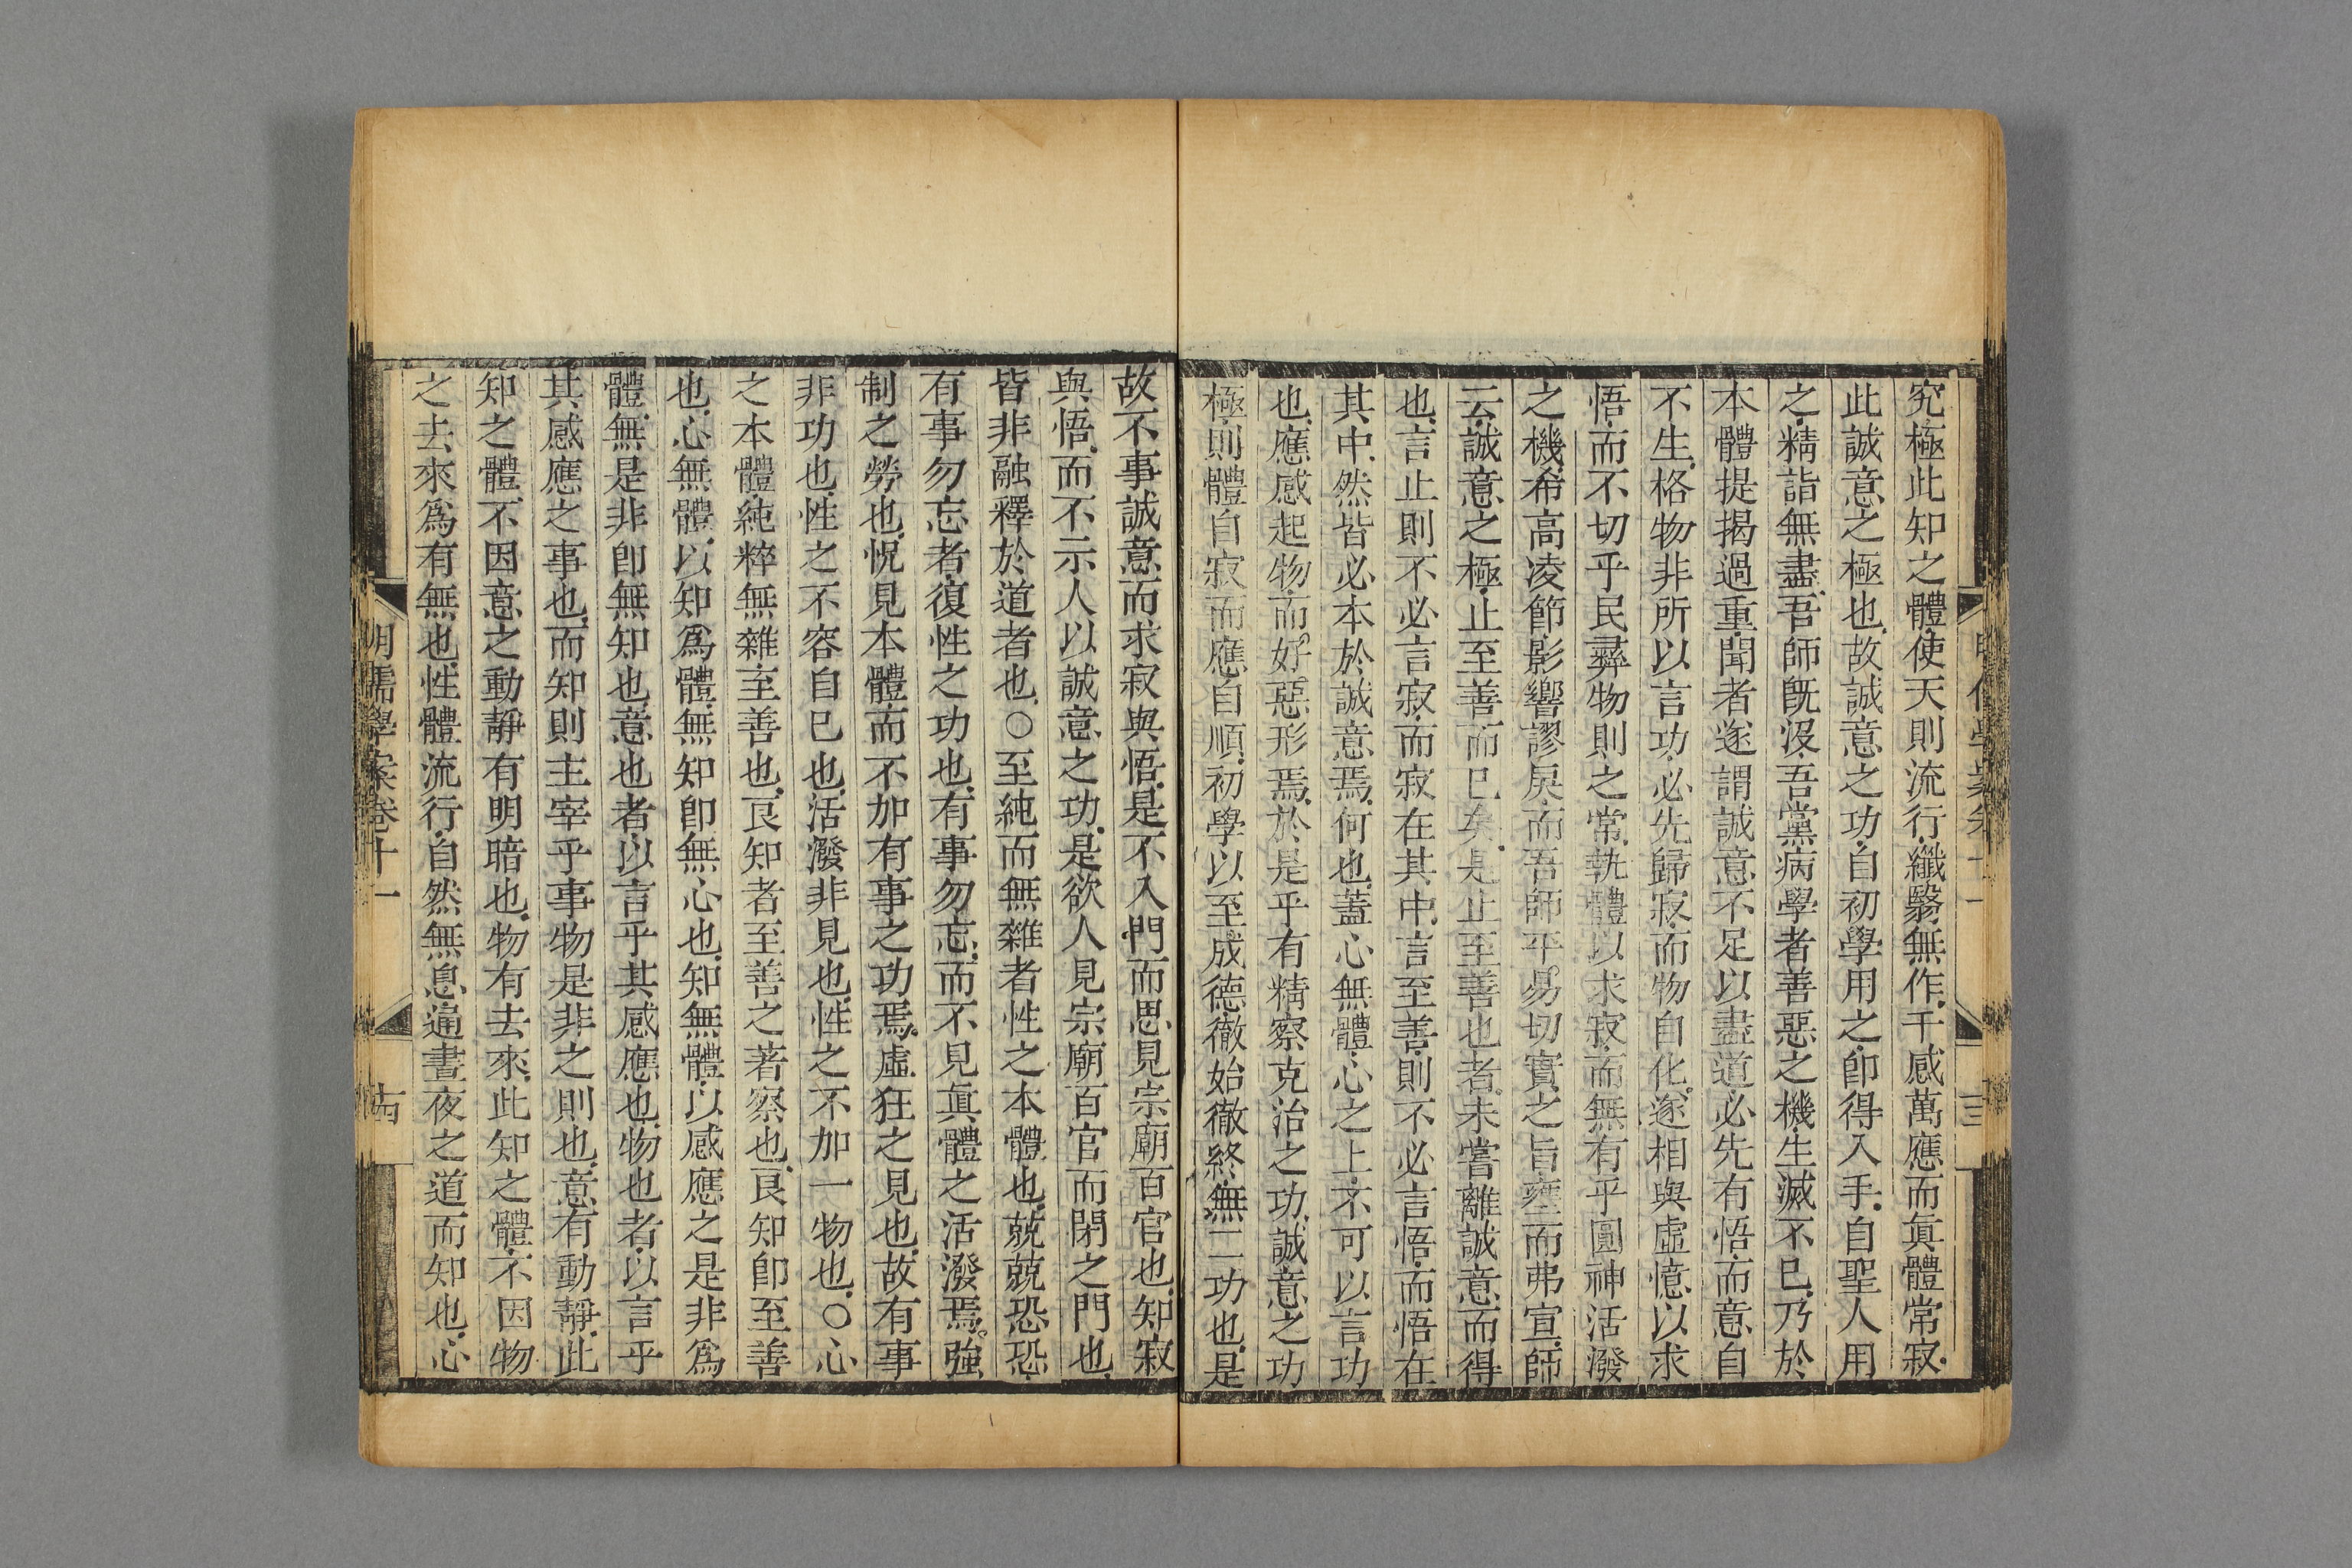 究極此知之體使天則流行纖翳無作千感萬應而眞體常寂
此誠意之極也故誠意之功自初學用之卽得入手自聖人用
之精詣無盡吾師旣沒吾黨病學者善惡之機生滅不已乃於
本體提揭過重聞者遂謂誠意不足以盡道必先有悟而意自
不生格物非所以言功必先歸寂而物自化遂相與虛憶以求
悟而不切乎民彛物則之常執體以求寂而無有乎圓神活潑
之機希高凌節影響謬戾而吾師平易切實之旨壅而弗宣師
云誠意之極止至善而已矣是止至善也者未嘗離誠意而得
也言止則不必言寂而寂在其中言至善則不必言悟而悟在
其中然皆必本於誠意焉何也蓋心無體心之上不可以言功
也應感起物而好惡形焉於是乎有精察克治之功誠意之功
極則體自寂而應自順初學以至成德徹始徹終無二功也是
故不事誠意而求寂與悟是不入門而思見宗廟百官也知寂
與悟而不示人以誠意之功是欲人見宗廟百官而閉之門也
皆非融釋於道者也○至純而無雜者性之本體也兢兢恐恐
有事勿忘者復性之功也有事勿忘而不見眞體之活潑焉強
制之勞也怳見本體而不加有事之功焉虛狂之見也故有事
非功也性之不容自已也活潑非見也性之不加一物也○心
之本體純粹無雜至善也良知者至善之著察也良知卽至善
也心無體以知爲體無知卽無心也知無體以感應之是非爲
體無是非卽無知也意也者以言乎其感應也物也者以言乎
其感應之事也而知則主宰乎事物是非之則也意有動靜此
知之體不因意之動靜有明暗也物有去來此知之體不因物
之去來爲有無也性體流行自然無息通晝夜之道而知也心
明儒學案卷十一
十四